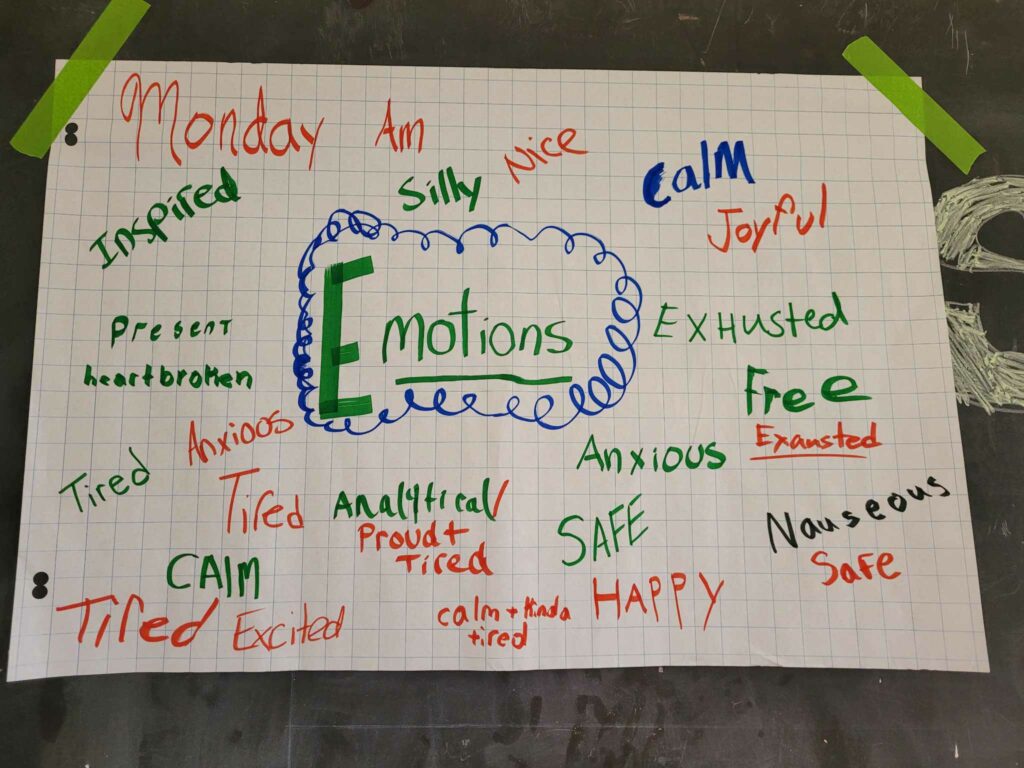 Monday Am
Nice
Silly
Calm
Inspired
Joyful
Emotions
Present
heartbroken
Exhusted
Free
Exausted
Anxioos
Anxious
Tired
Tired
Analytical/
Proud +
Tired
Nauseous
SAFE
Safe
CAlm
HAPPY
Tired
Excited
calm + kinda
tired